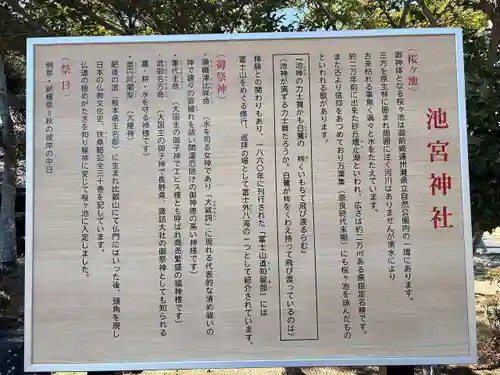 池宮神社
(桜ヶ池)
御神体となる桜ヶ池は御前崎遠州灘県立自然公園内の一環にあります。
三方を原生林に囲まれ周囲に注ぐ河川はありませんが湧水により
古来枯れる事無く満々と水をたたえています。
約二万年前に出来た砂丘堰止湖といわれ、広さは約二万㎡ある県指定名勝です。
また古より信仰をあつめており万葉集(奈良時代末期)にも桜ヶ池を詠んだもの
といわれる歌があります。
『池神の力士舞かも白鷺の 桙くいもちて飛び渡るらむ』
(池神が演ずる力士舞だろうか。白鷺が桙をくわえ持って飛び渡っているのは)
修験との関わりもあり、一八六〇年に刊行された「冨士山道知留部」には
富士山をめぐる修行、巡拝の場として富士外八海の一つとして紹介されています。
(御祭神)
瀬織津比咩命 (水を司る女神であり「大祓詞」に現れる代表的な清め祓いの
神で諸々の罪穢れを祓い開運厄除けの御神徳の高い神様です)
事代主命 (大国主の御子神でエビス様とも呼ばれ商売繁盛の福神様です)
武御名方命 (大国主の御子神で長野県、諏訪大社の御祭神としても知られる
農・耕・水を守る神様です)
皇円阿闍梨 (大龍神)
肥後の国(熊本県玉名郡)に生まれ比叡山にて仏門にはいった後、頭角を現し
日本の仏教文化史、扶桑略記全三十巻を記しています。
仏道の極めがたきを知り龍神に変じて桜ヶ池に入定しました。
(祭日)
例祭・納櫃祭=秋の彼岸の中日